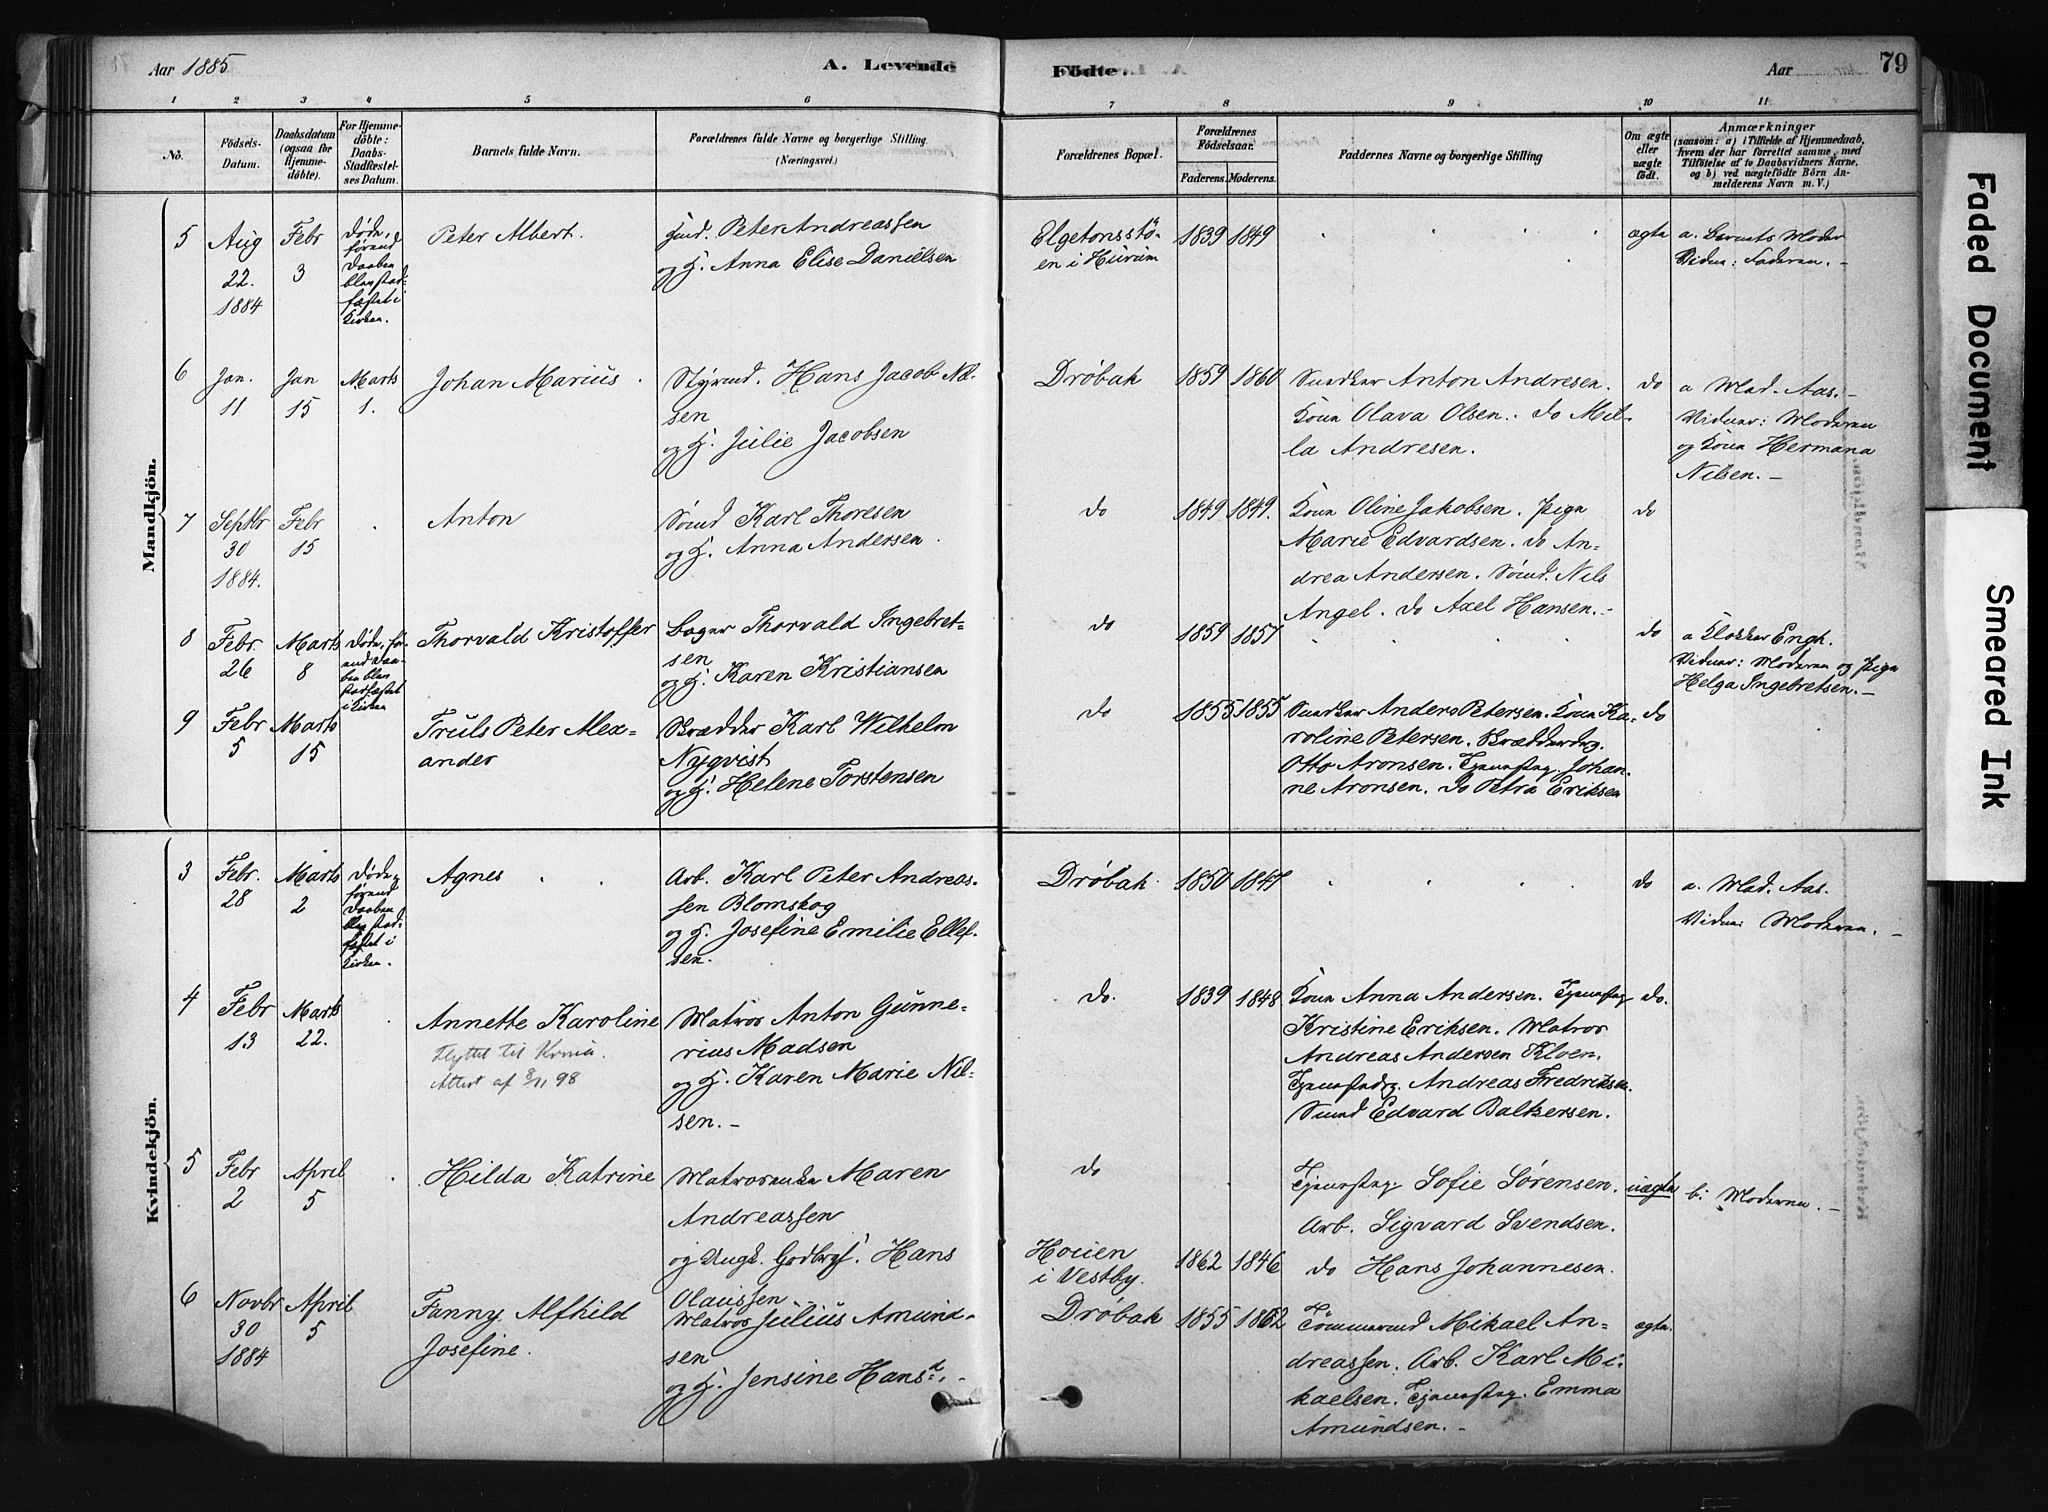 Aar 1885
A. Levende
Födte.
Aar
79
1 2 3 4 5 6 7 8 9 10 11
No.
Födsels-
Datum.
Daabsdatum
(ogsaa for
Hjemme-
döbte).
For Hjemme-
döbte:
Daabs-
Stadfæstel-
ses Datum.
Barnets fulde Navn.
Forældrenes fulde Navne og borgerlige Stilling.
(Næringsvei.)
Forældrenes Bopæl.
Forældrenes
Födselsaar.
Faderens. Moderens.
Faddernes Navne og borgerlige Stilling
Om ægte
eller
uægte
födt.
Anmærkninger
(saasom: a) i Tilfælde af Hjemmedaab,
hvem der har forrettet samme, med
Tilföielse af to Daabsvidners Navne,
og b) ved uægtefödte Börn An-
melderens Navn m. V.)
Mandkjön.
5
Aug
22.
1884
Febr
3
Døde,
førend
Daaben
blev stad-
fæstet i
Kirken.
Peter Albert.
Peter Andreassen
og H. Anna Elise Danielsen
Elgetonsstø-
en i Hurum
1839 1849
ægte
a. Barnets Moder
Vidne: Faderen. -
6
Jan.
11
Jan
15
Marts
1.
Johan Marius
Styrmd. Hans Jacob Nil-
sen
og H. Julie Jacobsen
Drøbak
1859 1860
Anton Andresen.
Kone Olava Olsen. do Mil-
la Andresen.
do
a Mad. Aas. -
Vidner: Moderen
og Kone Hermana
Nilsen. -
7
Septbr
30
1884.
Febr
15
Anton
Sømd Karl Thoresen
og H. Anna Andersen.
do
1849 1849.
Kone Oline Jakobsen. Pige
Marie Edvardsen. do An-
drea Andersen. Sømd. Nils
Angel. do Axel Hansen. -
do
8
Febr.
26
Marts
8
Døde, fø-
rend Daa-
ben blev
stadfæstet
i Kirken
Thorvald Kristoffer
Bager Thorvald Ingebret-
sen
og H. Karen Kristiansen
do
1859 1857
do
a Klokker Engh.
Vidner: Moderen og Pige
Helga Ingebretsen. -
9
Febr
5
Marts
15
Truls Peter Alex-
ander
Skrædder Karl Wilhelm
Nyqvist
og H. Helene Torstensen
do
1855 1855
Anders Petersen. Kone Ka-
roline Petersen. Skrædderdrg.
Otto Aronsen. Tjenestpg. Johan-
ne Aronsen. do Petra Eriksen
do
Kvindekjön.
3
Febr.
28
Marts
2
Døde,
førend
Daaben
blev stad-
fæstet i
Kirken.
Agnes
Arb. Karl Peter Andreas-
sen Blomskog
og H. Josefine Emilie Ellef-
sen.
Drøbak.
1850 1847
do
a. Mad. Aas.
Vidne: Moderen. -
4
Febr
13
Marts
22.
Annette Karoline
Flyttet til Krnia.
Attest af 8/11 98
Matros Anton Gunne-
rius Madsen
og H. Karen Marie Nil-
sen. -
do.
1839 1848
Kone Anna Andersen. Tjenestpg
Kristine Eriksen. Matros
Andreas Andersen Kloen.
Tjenestedrg. Andreas Fredriksen.
Edvard Baltzersen.
do.
5
Febr
2
April
5
Hilda Katrine
Matrosenke Maren
Andreassen
og Ungk. Gdbrgs. Hans
Olaussen
do
Houen
i Vestby.
1862 1846
Tjenestpg. Sofie Sørensen.
Arb. Sigvard Svendsen.
do Hans Johannesen.
uægte
b: Moderen. -
6
Novbr
30
1884
April
5
Fanny Alfhild
Josefine.
Matros Julius Amund-
sen
og H. Jensine Hansd. -
Drøbak
1855 1862
Tømmermd Mikael An-
dreassen. Arb. Karl Mi-
kaelsen. Tjenestpg. Emma
Amundsen. -
ægte.
Faded Document
Smeared Ink